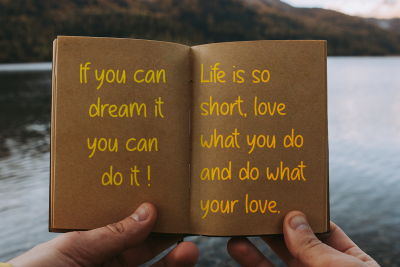 If you can
dream it
you can
do it !
Life is so
short, love
what you do
and do what
your love.